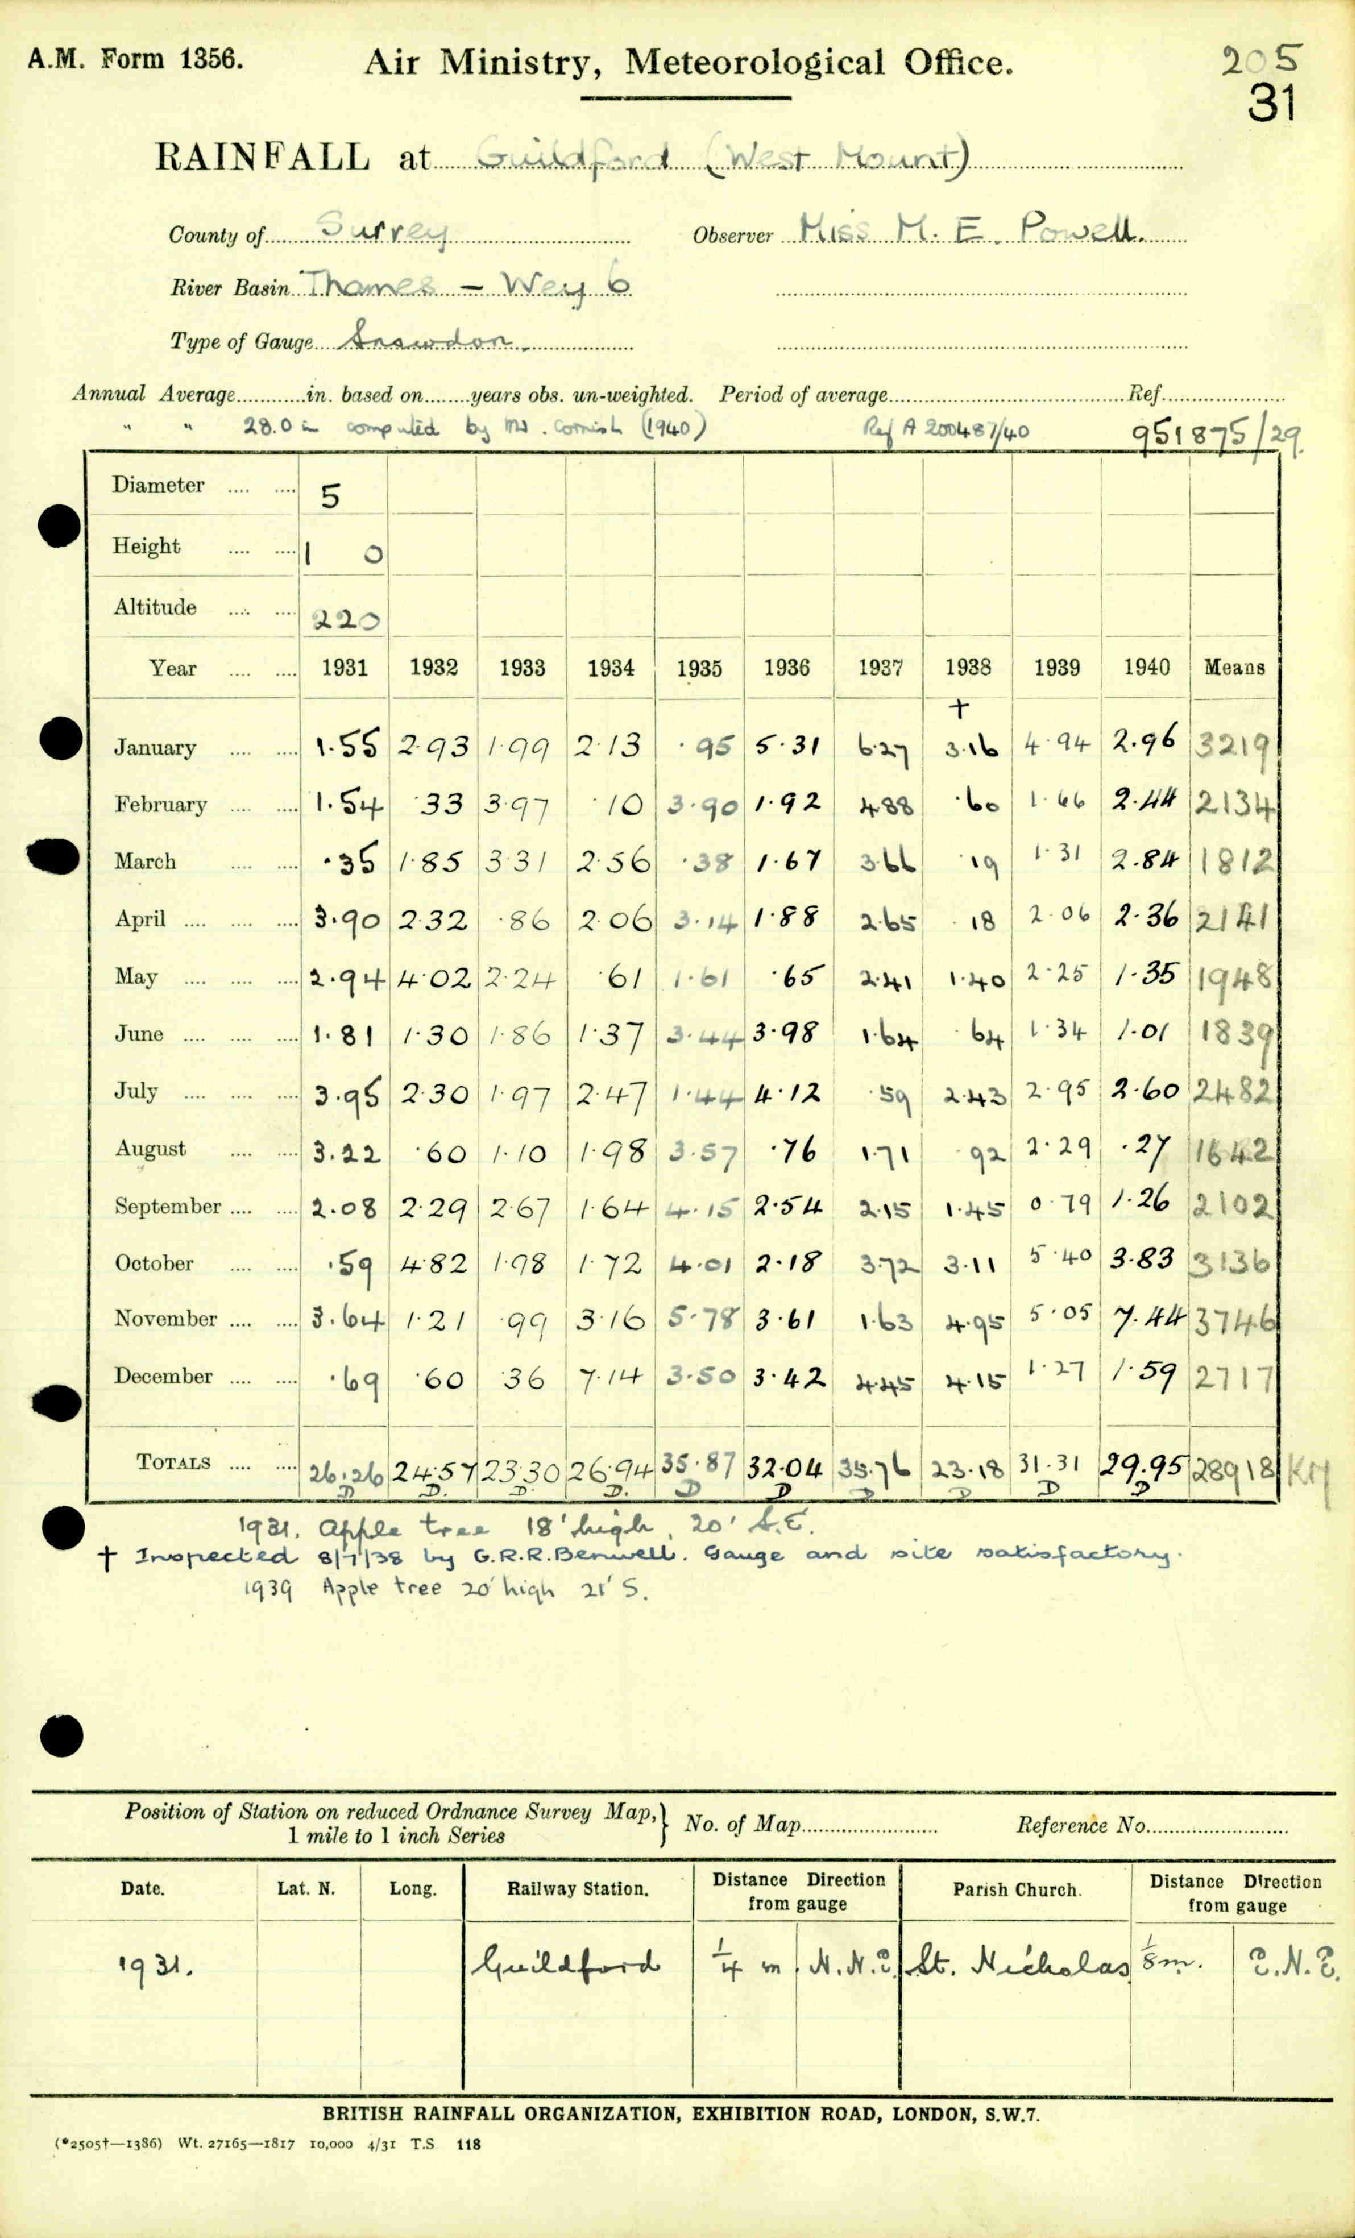 A.M. Form 1356. Air Ministry, Meteorological Office. 205
31
RAINFALL at Guildford (West Mount)
County of Surrey Observer Miss M. E. Powell.
River Basin Thames - Wey 6
Type of Gauge Snowdon.
Annual Average in. based on years obs. un-weighted. Period of average Ref.
" " 28.0 in computed by Mr. Cornish (1940) Ref A 200487/40 951875/29.
Diameter 5
Height 1 0
Altitude 220
Year 1931 1932 1933 1934 1935 1936 1937 1938 1939 1940 Means
†
January 1.55 2.93 1.99 2.13 .95 5.31 6.27 3.16 4.94 2.96 3219
February 1.54 .33 3.97 .10 3.90 1.92 4.88 .60 1.66 2.44 2134
March .35 1.85 3.31 2.56 .38 1.67 3.66 .19 1.31 2.84 1812
April 3.90 2.32 .86 2.06 3.14 1.88 2.65 .18 2.06 2.36 2141
May 2.94 4.02 2.24 .61 1.61 .65 2.41 1.40 2.25 1.35 1948
June 1.81 1.30 1.86 1.37 3.44 3.98 1.64 .64 1.34 1.01 1839
July 3.95 2.30 1.97 2.47 1.44 4.12 .59 2.43 2.95 2.60 2482
August 3.22 .60 1.10 1.98 3.57 .76 1.71 .92 2.29 .27 1642
September 2.08 2.29 2.67 1.64 4.15 2.54 2.15 1.45 0.79 1.26 2102
October .59 4.82 1.98 1.72 4.01 2.18 3.72 3.11 5.40 3.83 3136
November 3.64 1.21 .99 3.16 5.78 3.61 1.63 4.95 5.05 7.44 3746
December .69 .60 .36 7.14 3.50 3.42 4.45 4.15 1.27 1.59 2717
TOTALS 26.26 24.57 23.30 26.94 35.87 32.04 35.76 23.18 31.31 29.95 28918 KM
D D. D. D. D D D D D D
1931. Apple tree 18' high, 20' S.E.
† Inspected 8/7/38 by G.R.R.Benwell. Gauge and site satisfactory.
1939 Apple tree 20' high 21' S.
Position of Station on reduced Ordnance Survey Map, No. of Map Reference No.
1 mile to 1 inch Series
Date. Lat. N. Long. Railway Station. Distance Direction from gauge Parish Church. Distance Direction from gauge
1931. Guildford 1/4 m N.N.E. St. Nicholas 1/8 m. E.N.E.
BRITISH RAINFALL ORGANIZATION, EXHIBITION ROAD, LONDON, S.W.7.
(*2505†—1386) Wt. 27165—1817 10,000 4/31 T.S 118